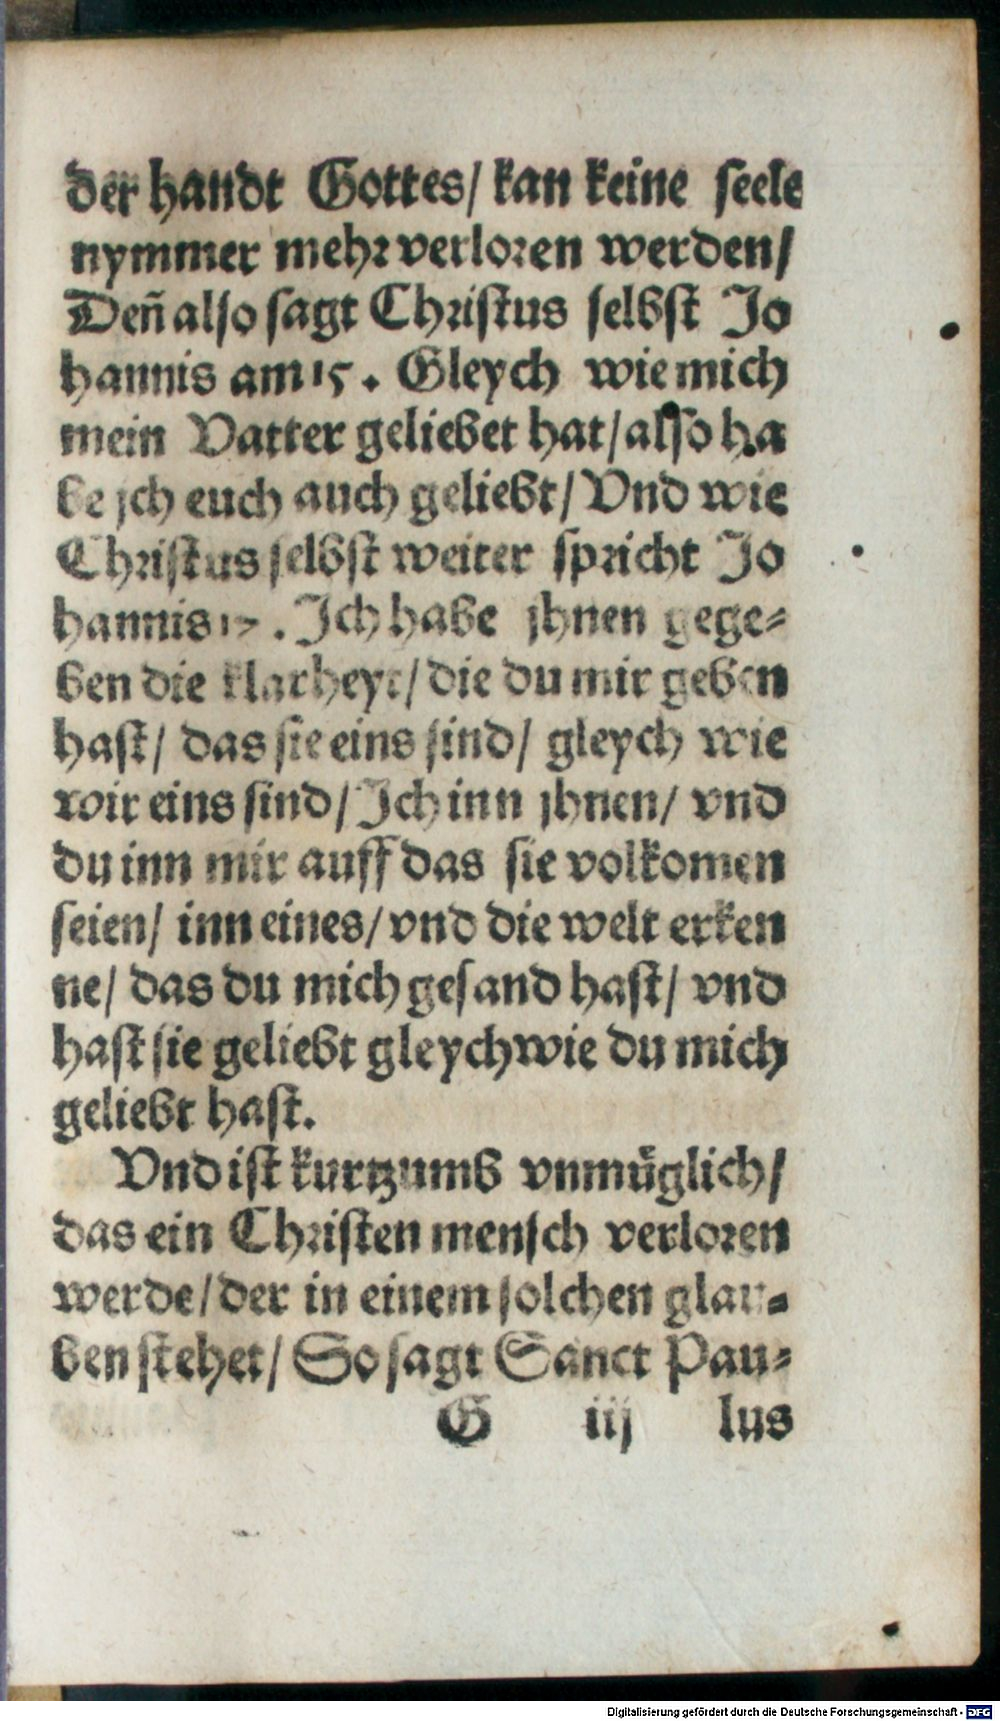 der handt Gottes/ kan keine seele
nymmer mehr verloren werden/
Deñ also sagt Christus selbst Jo
hannis am 15. Gleych wie mich
mein Vatter geliebet hat/ also ha
be jch euch auch geliebt/ Vnd wie
Christus selbst weiter spricht Jo
hannis 17. Ich habe jhnen gege-
ben die klarheyt/ die du mir geben
hast/ das sie eins sind/ gleych wie
wir eins sind/ Ich inn jhnen/ vnd
du inn mir auff das sie volkomen
seien/ inn eines/ vnd die welt erken
ne/ das du mich gesand hast/ vnd
hast sie geliebt gleych wie du mich
geliebt hast.
Vnd ist kurtzumb vnmüglich/
das ein Christen mensch verloren
werde/ der in einem solchen glau-
ben stehet/ So sagt Sanct Pau-
G iij lus
Digitalisierung gefördert durch die Deutsche Forschungsgemeinschaft - DFG